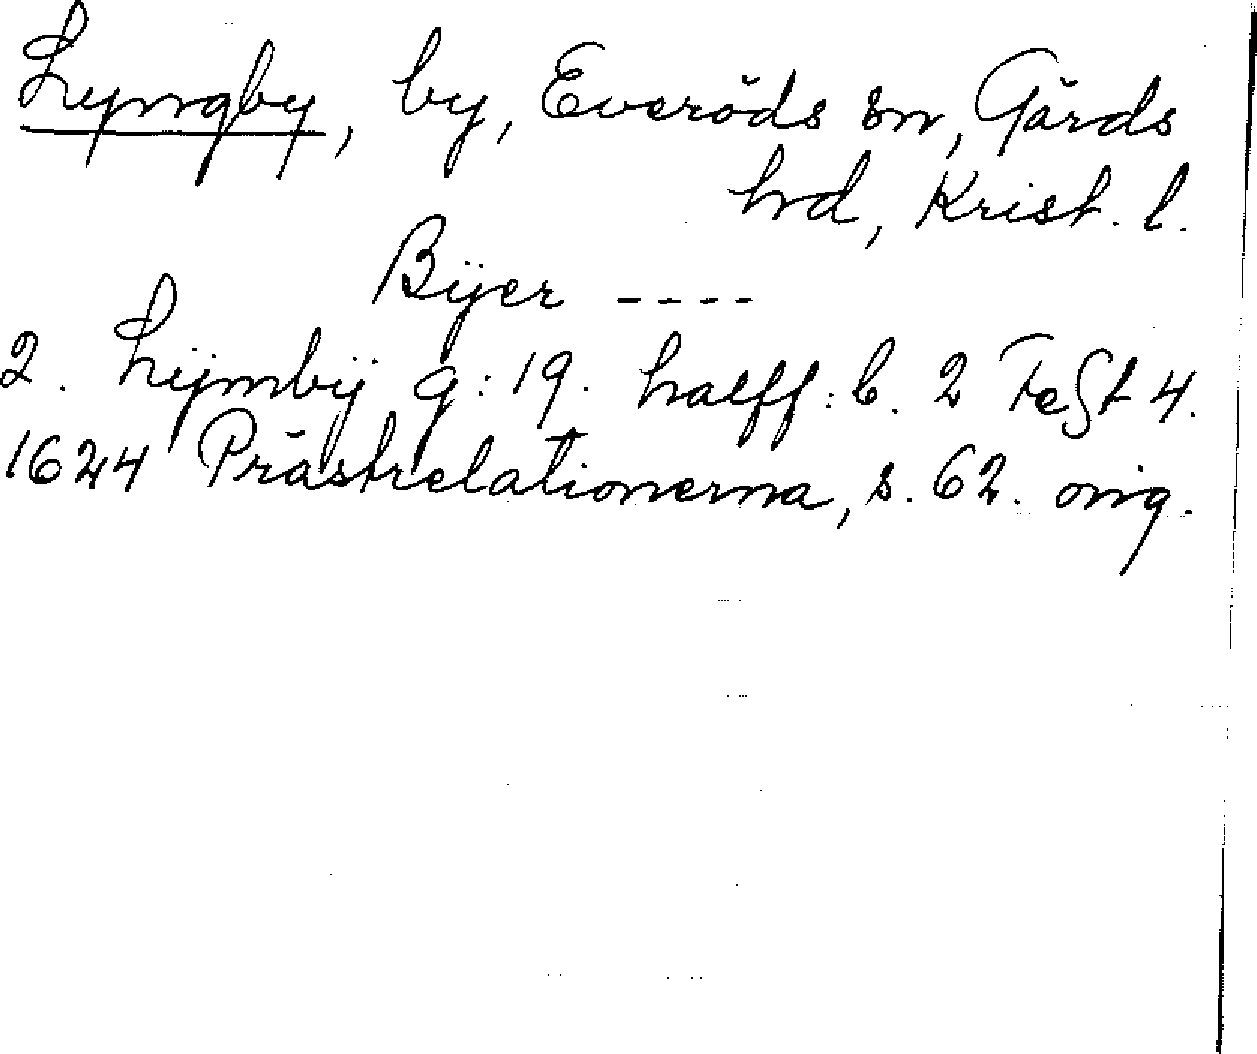 Lyngby, by, Everöds sn, Gärds
hrd, Krist. l.
Bÿer ----
2. Lÿmbÿ g: 19. halff: b. 2 Feʃt 4.
1624 Prästrelationerna, s. 62. orig.